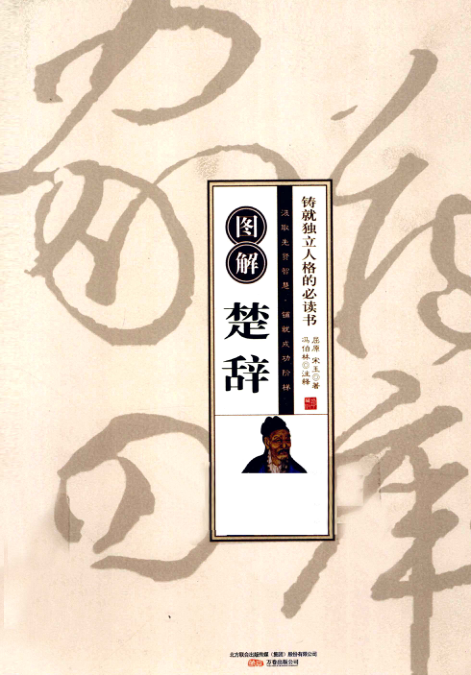 铸就独立人格的必读书
屈原 宋玉◎著
冯伯林◎注释
汲取先贤智慧·铺就成功阶梯
图解
楚辞
北方联合出版传媒（集团）股份有限公司
万卷出版公司